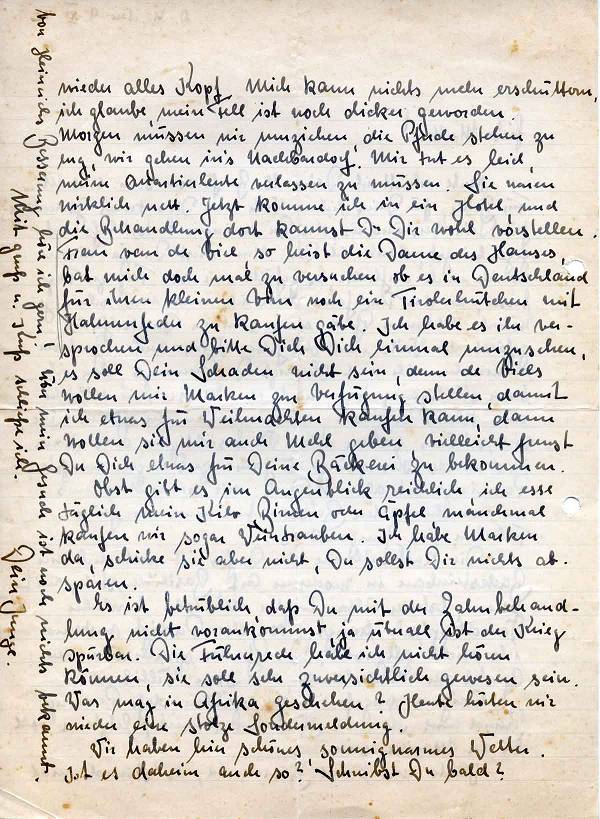 wieder alles Kopf. Mich kann nichts mehr erschüttern,
ich glaube, mein Fell ist noch dicker geworden.
Morgen müssen wir umziehen, die Pferde stehen zu
eng, wir gehen in's Nachbardorf. Mir tut es leid
meine Quartierleute verlassen zu müssen. Sie waren
wirklich nett. Jetzt komme ich in ein Hotel und
die Behandlung dort kannst Du Dir wohl vorstellen.
Frau van de Viel, so heist die Dame des Hauses,
bat mich doch mal zu versuchen ob es in Deutschland
für ihren kleinen noch ein Tirolerhütchen mit
Hahnenfeder zu kaufen gäbe. Ich habe es ihr ver-
sprochen und bitte Dich Dich einmal umzusehen,
es soll Dein Schaden nicht sein, denn de Viels
wollen mir Marken zur Verfügung stellen, damit
ich etwas für Weihnachten kaufen kann, dann
wollen sie mir auch Mehl geben, vielleicht
Du Dich etwas für Deine Bäckerei zu bekommen.
Obst gibt es im Augenblick reichlich ich esse
täglich mein Kilo Birnen oder Äpfel manchmal
kaufen wir sogar Weintrauben. Ich habe Marken
da, schicke sie aber nicht, Du sollst Dir nichts ab-
sparen.
Es ist betrüblich, daß Du mit der Zahnbehand-
lung nicht vorankommst, ja überall ist der Krieg
spürbar. Die Führerrede habe ich nicht hören
können, sie soll sehr zuversichtlich gewesen sein.
Was mag in Afrika geschehen? Heute hörten wir
wieder eine stolze Sondermeldung.
Wir haben hier schönes sonnigwarmes Wetter.
Ist es daheim auch so? Schreibst Du bald?
Von Heinrichs Besserung höre ich gern, von mein Gesuch ist noch nichts bekannt.
Mit Gruß u. Kuß schließe ich.
Dein Junge.